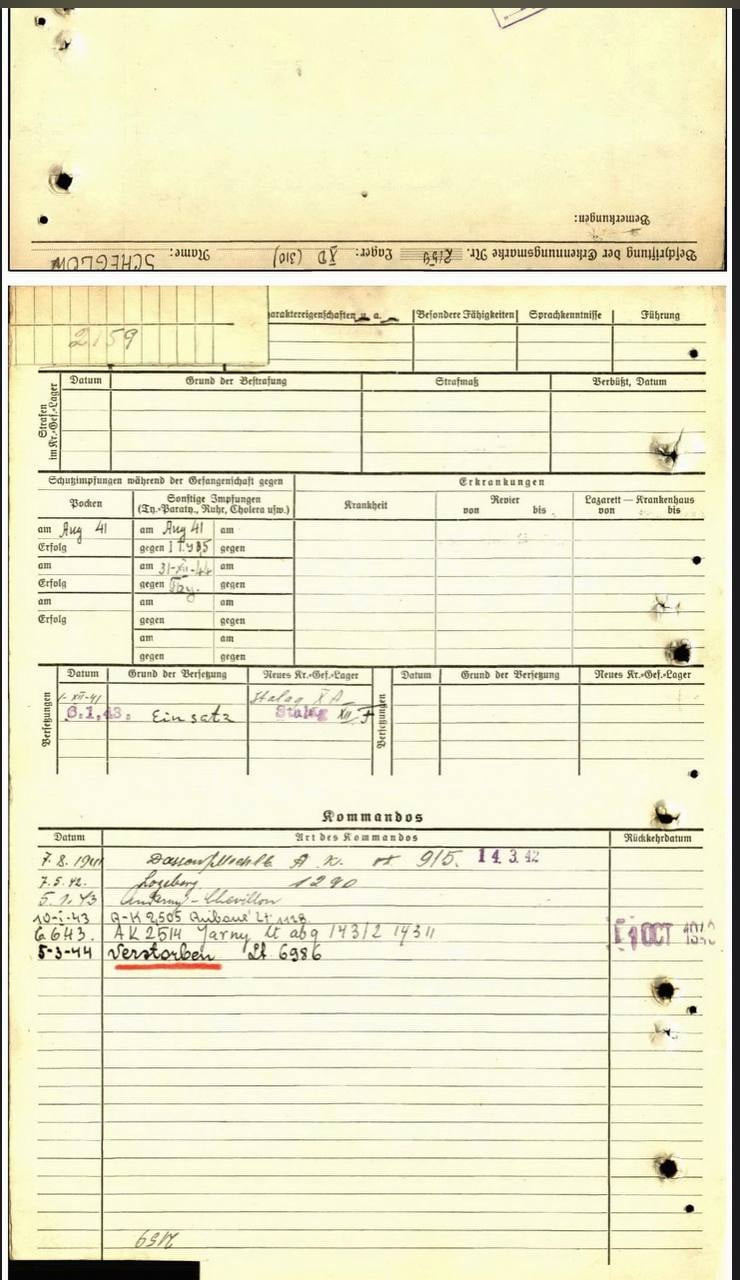 Bemerkungen:
Beschriftung der Erkennungsmarke Nr. 2159 Lager: XD (310) Name: SCHEGLOW
2159
Charaktereigenschaften u. a. Besondere Fähigkeiten Sprachkenntnisse Führung
Strafen im Kr.-Gef.-Lager
Datum Grund der Bestrafung Strafmaß Verbüßt, Datum
Schutzimpfungen während der Gefangenschaft gegen Erkrankungen
Pocken Sonstige Impfungen
(Ty.-Paraty., Ruhr, Cholera usw.) Krankheit Revier
von bis Lazarett — Krankenhaus
von bis
am Aug 41 am Aug 41 am
Erfolg gegen gegen
am am 31-XII-44 am
Erfolg gegen gegen
am am am
Erfolg gegen gegen
am am
gegen gegen
Versetzungen
Datum Grund der Versetzung Neues Kr.-Gef.-Lager Datum Grund der Versetzung Neues Kr.-Gef.-Lager
1-XII-41 Stalag X A
6.1.43. Einsatz Stalag XII F
Versetzungen
Kommandos
Datum Art des Kommandos Rückkehrdatum
7.8.1941 A. K. 915. 14.3.42
7.5.42. 1290
5.1.43
10-1-43 A-K 2505
6 6 43. AK 2514 Jarny lt abg 14312 14311 OCT
5-3-44 Verstorben Lt 6986
2159